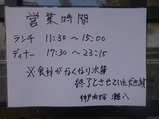 営業時間
ランチ 11:30～15:00
ディナー 17:30～23:15
※食材がなくなり次第
終了とさせていただきます